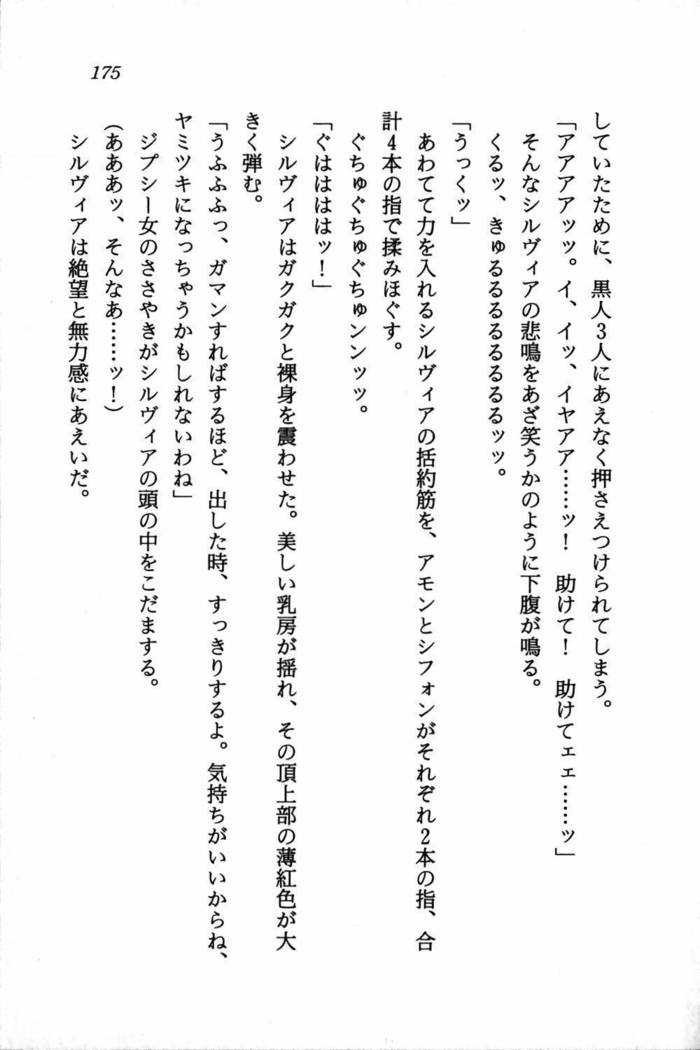 175
していたために、黒人3人にあえなく押さえつけられてしまう。
「アアアアッッ。イ、イッ、イヤアア……ッ!　助けて!　助けてェェ……ッ」
そんなシルヴィアの悲鳴をあざ笑うかのように下腹が鳴る。
くるッ、きゅるるるるるるるるッッ。
「うっくッ」
あわてて力を入れるシルヴィアの括約筋を、アモンとシフォンがそれぞれ2本の指、合
計4本の指で揉みほぐす。
ぐちゅぐちゅぐちゅンンッッ。
「ぐはははははッ!」
シルヴィアはガクガクと裸身を震わせた。美しい乳房が揺れ、その頂上部の薄紅色が大
きく弾む。
「うふふふっ、ガマンすればするほど、出した時、すっきりするよ。気持ちがいいからね、
ヤミツキになっちゃうかもしれないわね」
ジプシー女のささやきがシルヴィアの頭の中をこだまする。
(あああッ、そんなあ……ッ!)
シルヴィアは絶望と無力感にあえいだ。